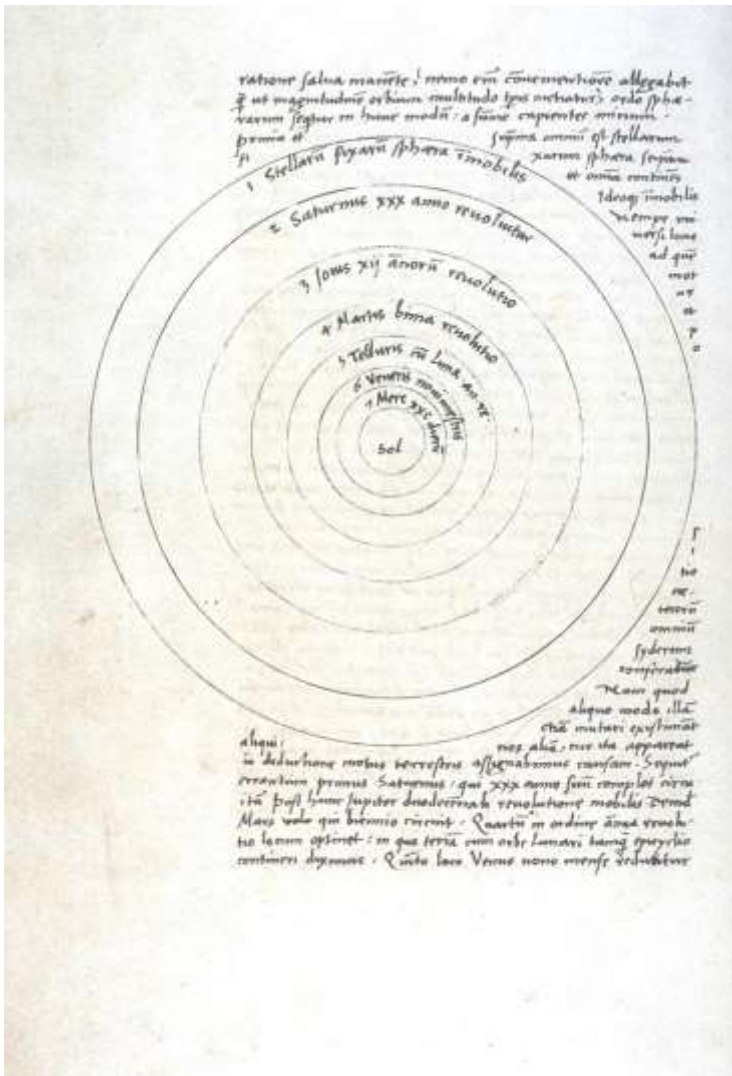 ratione salua manēte, nemo em̄ cōuenientiorē allegabit
q̄ ut magnitudinē orbium multitudo tp̄is metiatur, ordo sphæ-
rarum sequitur in hunc modū: a summo capientes initium.
prima et suprema omniū est stellarum
fixarum sphæra seipsam
et omnia continēs
Ideoq; īmobilis
nempe uni
uersi locus
ad quē
mot
us
et
p
o
1 Stellarū fixarū sphæra īmobilis
2 Saturnus xxx anno reuoluitur
3 Jouis xij annorū reuolutio
4 Martis bima reuolutio
5 Telluris cū Luna an. re.
6 Veneris nonimestris
7 Merc xxc dierū
Sol
s
i
tio
ce-
terorū
omniū
syderum
conferatur
Nam quod
aliquo modo illā
etiā mutari existimāt
aliqui: nos aliā, cur ita appareat
in deductione motus terrestris assignabimus causam. Sequitur
errantium primus Saturnus: qui xxx anno suū complet circu
itū post hunc Jupiter duodecennali reuolutione mobilis Deinde
Mars qui biennio circuit. Quartū in ordine annua reuolu-
tio locum optinet: in quo terrā cum orbe lunari tanq̄ epicyclio
contineri diximus. Quīto loco Venus nono mense reducitur